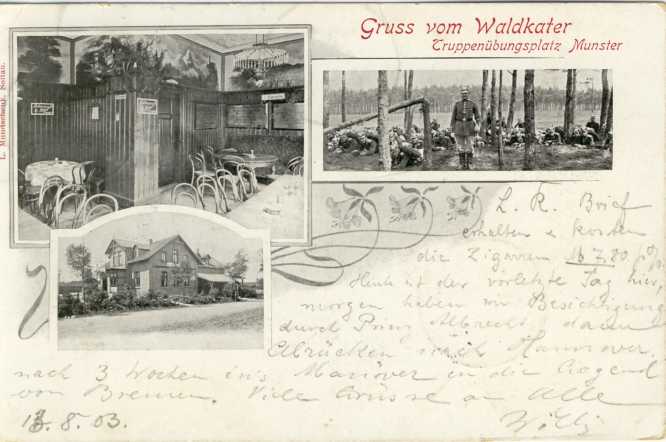 Gruss vom Waldkater
Truppenübungsplatz Munster
L. R. Brief
erhalten u. kosten
die Zigarren 16 7.80
Heute ist der vorletzte Tag hier,
morgen haben wir Besichtigung
durch Prinz Albrecht, dann
Abrücken nach Hannover,
nach 3 Wochen in's Manöver in die Gegend
von Bremen. Viele Grüsse an Alle
Willy
13.8.03.